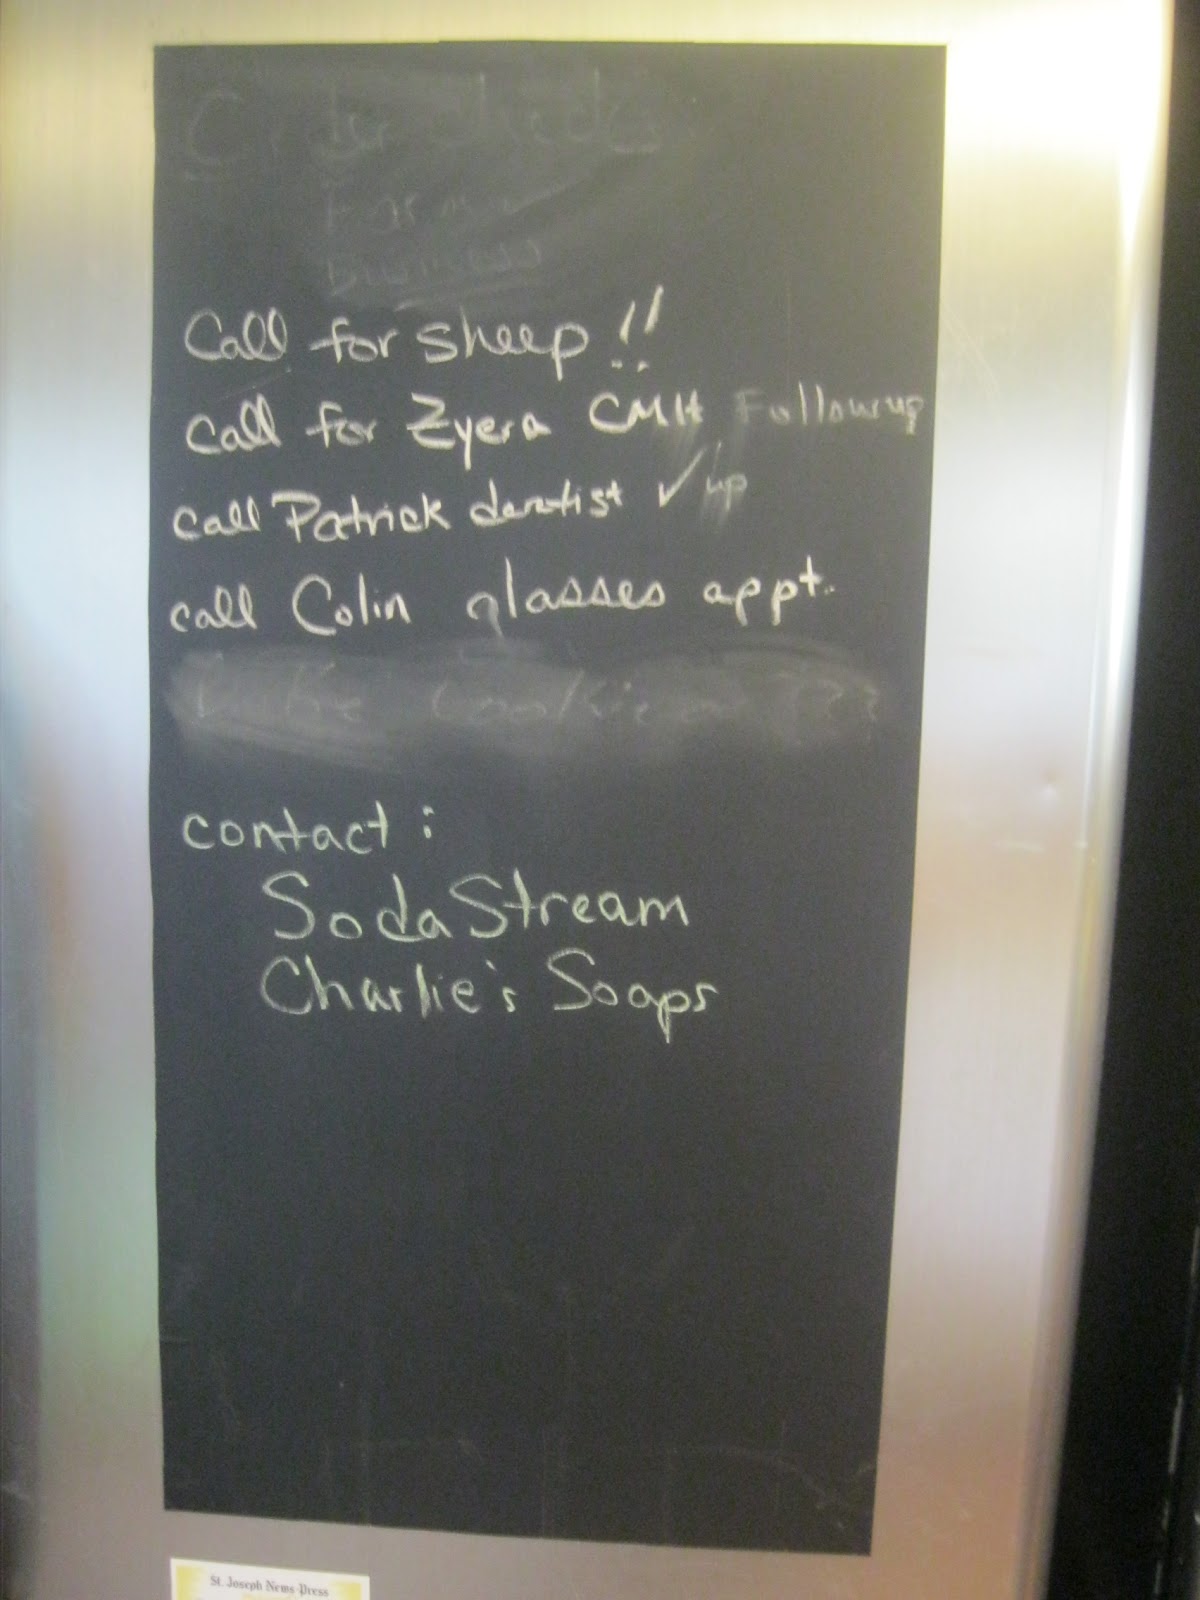 Order checks:
Farm
Business
Call for sheep!!
call for Zyera CMH Followup
call Patrick dentist ✓ up
call Colin glasses appt.
Cookies
contact:
SodaStream
Charlie's Soaps
St. Joseph News-Press